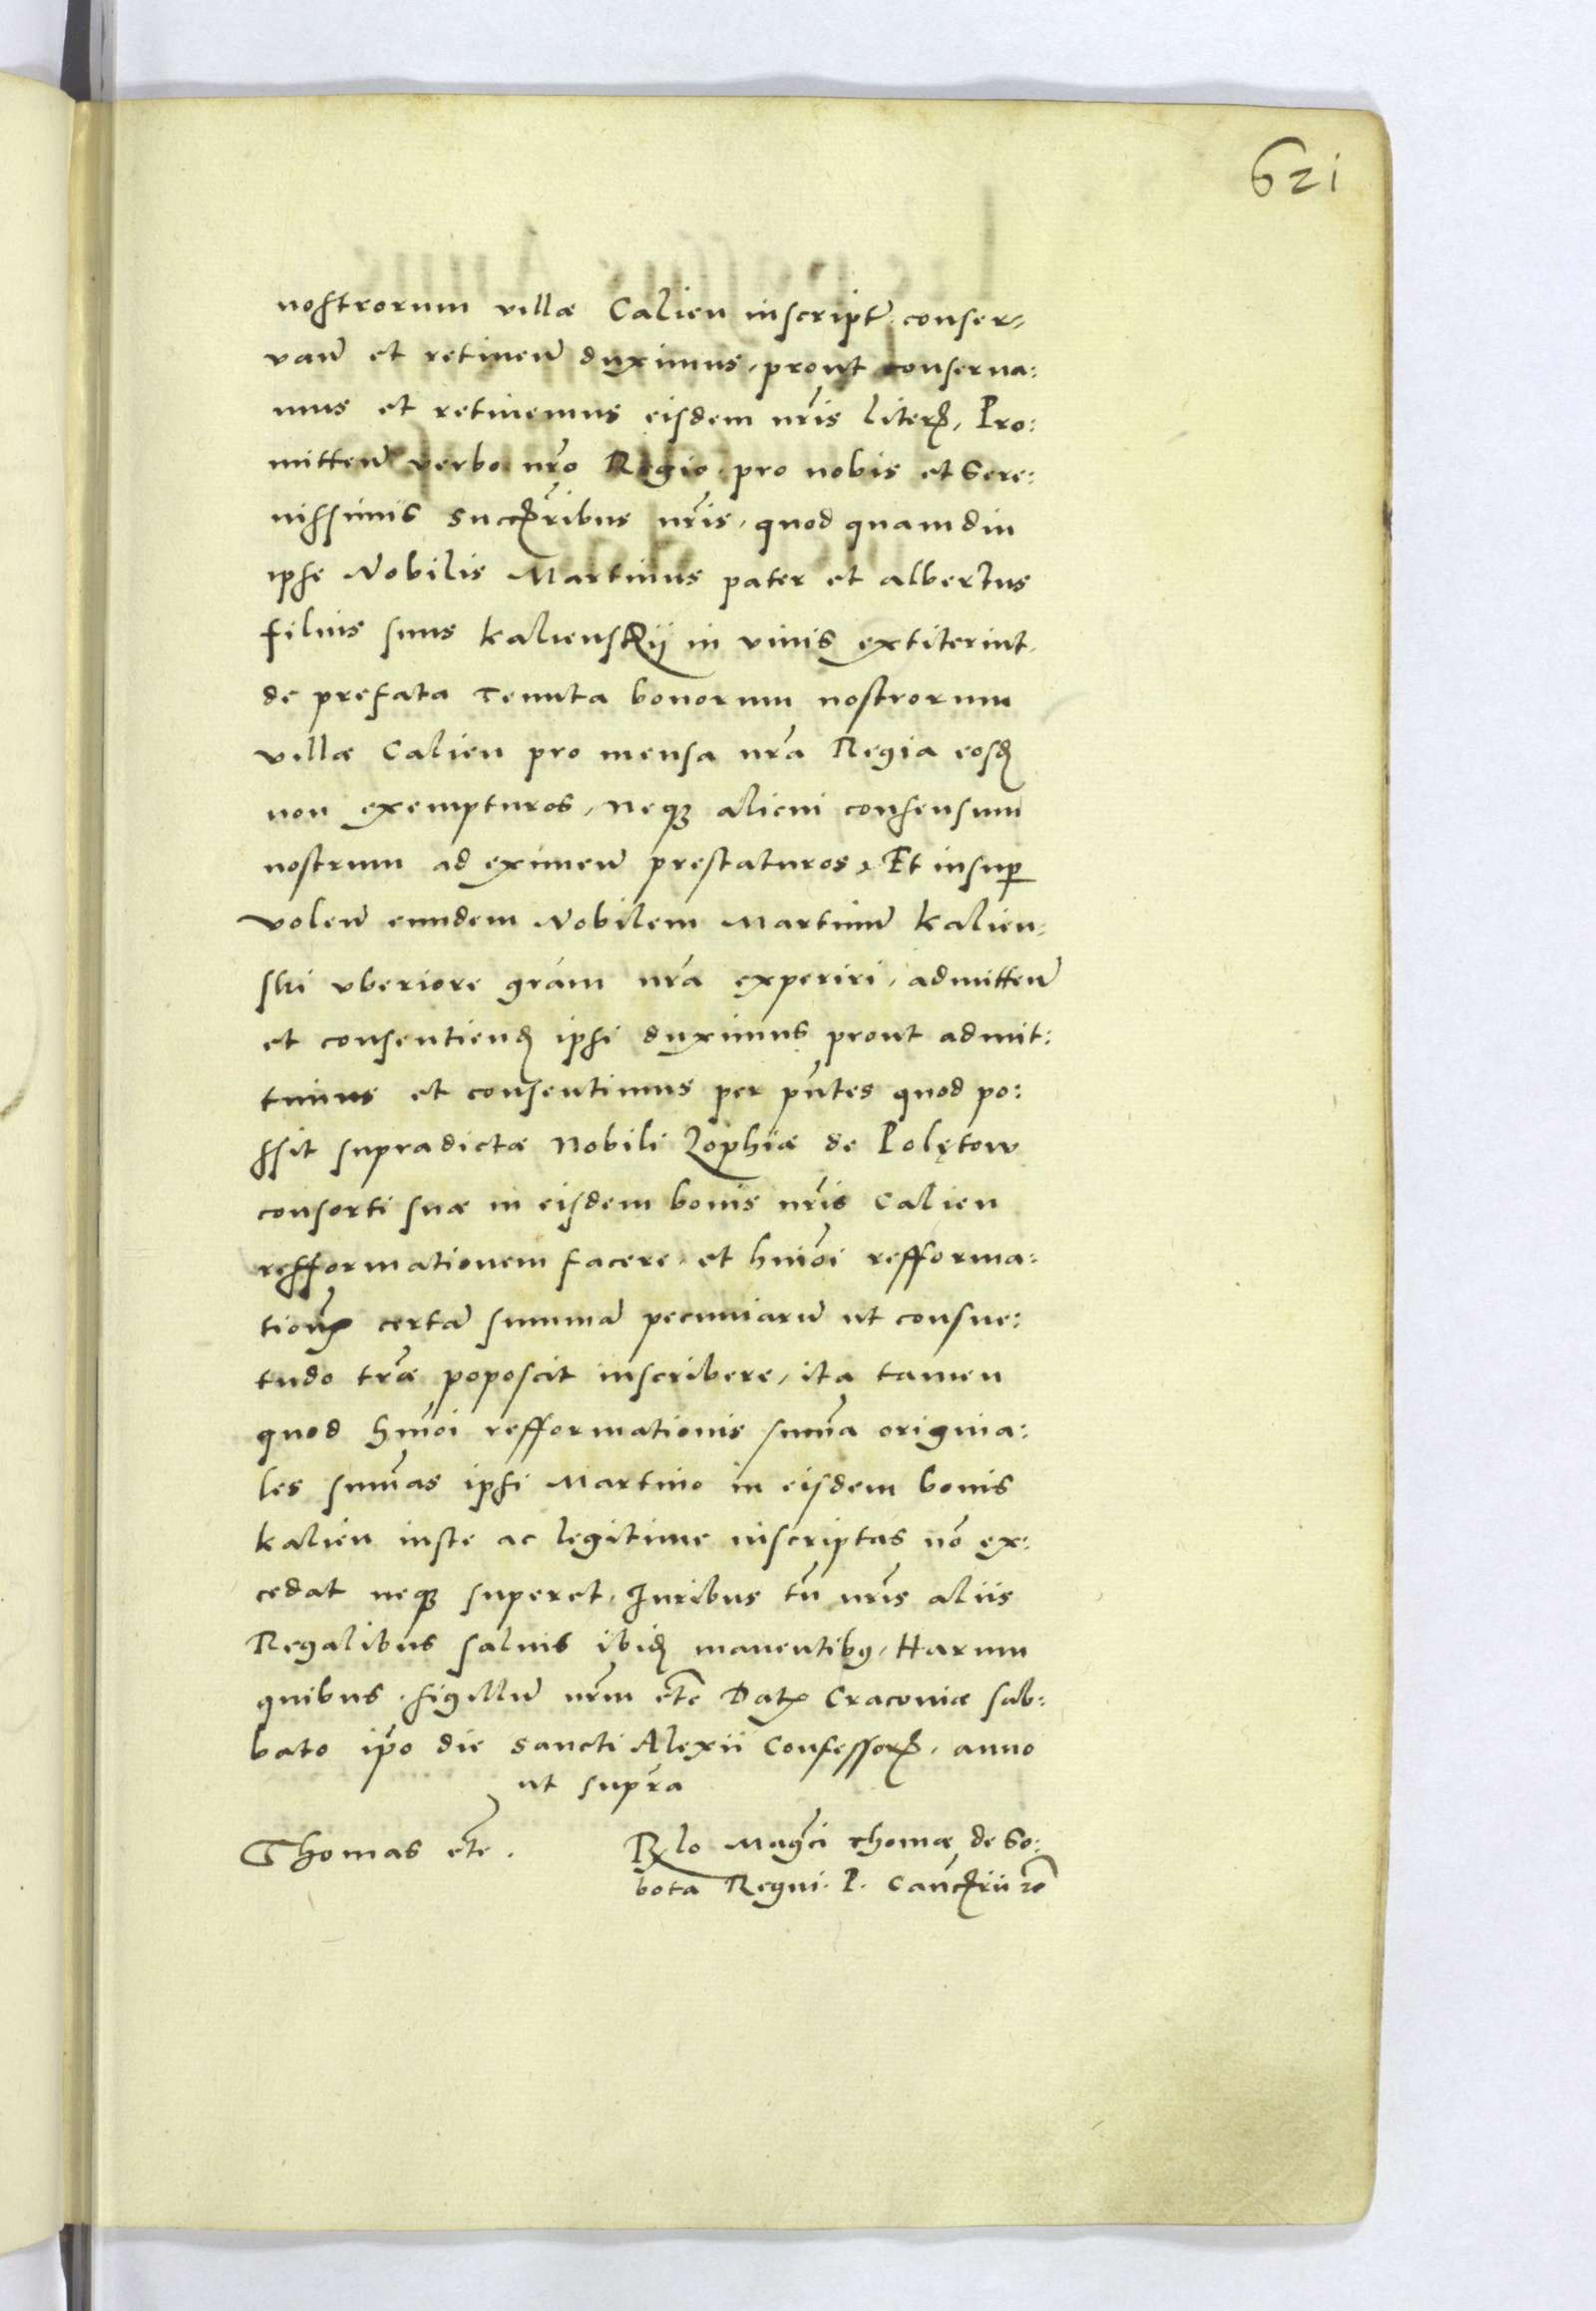 621
nostrorum villæ Calien inscriptũ conser=
vanð et retinenð duximus, prout conserva:
mus et retinemus eisdem nr̃is literȩ, Pro:
mittenð verbo nr̃o Regio pro nobis et Sere:
nissimis succr̃ibus nr̃is, quod quamdiu
ipse Nobilis Martinus pater et albertus
filius suus kalienskij in vivis extiterint,
de prefata Tenuta bonorum nostrorum
villæ Calien pro mensa nr̃a Regia eosđ
non exempturos, neqȝ alicui consensum
nostrum ad eximenð prestaturos, Et insuꝑ
volenð eundem Nobilem Martinũ kalien:
ski uberiore gr̃am nr̃a experiri, admittenð
et consentienđ ipsi duximus prout admit:
timus et consentimus per pñtes quod po:
ssit supradictæ Nobili Zophiæ de Polętow
consorti suæ in eisdem bonis nr̃is Calien
refformationem facere, et hmõi refforma:
tionȩ certã summã pecuniarũ ut consue:
tudo tr̃æ poposcit inscribere, ita tamen
quod hmõi refformationis sum̃a origina:
les sum̃as ipsi Martino in eisdem bonis
kalien iuste ac legitime inscriptas nõ ex:
cedat neqȝ superet, Iuribus tñ nr̃is aliis
Regalibus salvis ibiđ manentibꝯ, Harum
quibus sigillũ nr̃m etc̃ Datȩ Cracoviæ sab:
bato ip̃o die sancti Alexii Confessorȩ, anno
ut supra
Thomas etc̃.
Rlo Magc̃i Thomæ de So:
bota Regni P. Canc̃rii rc̃